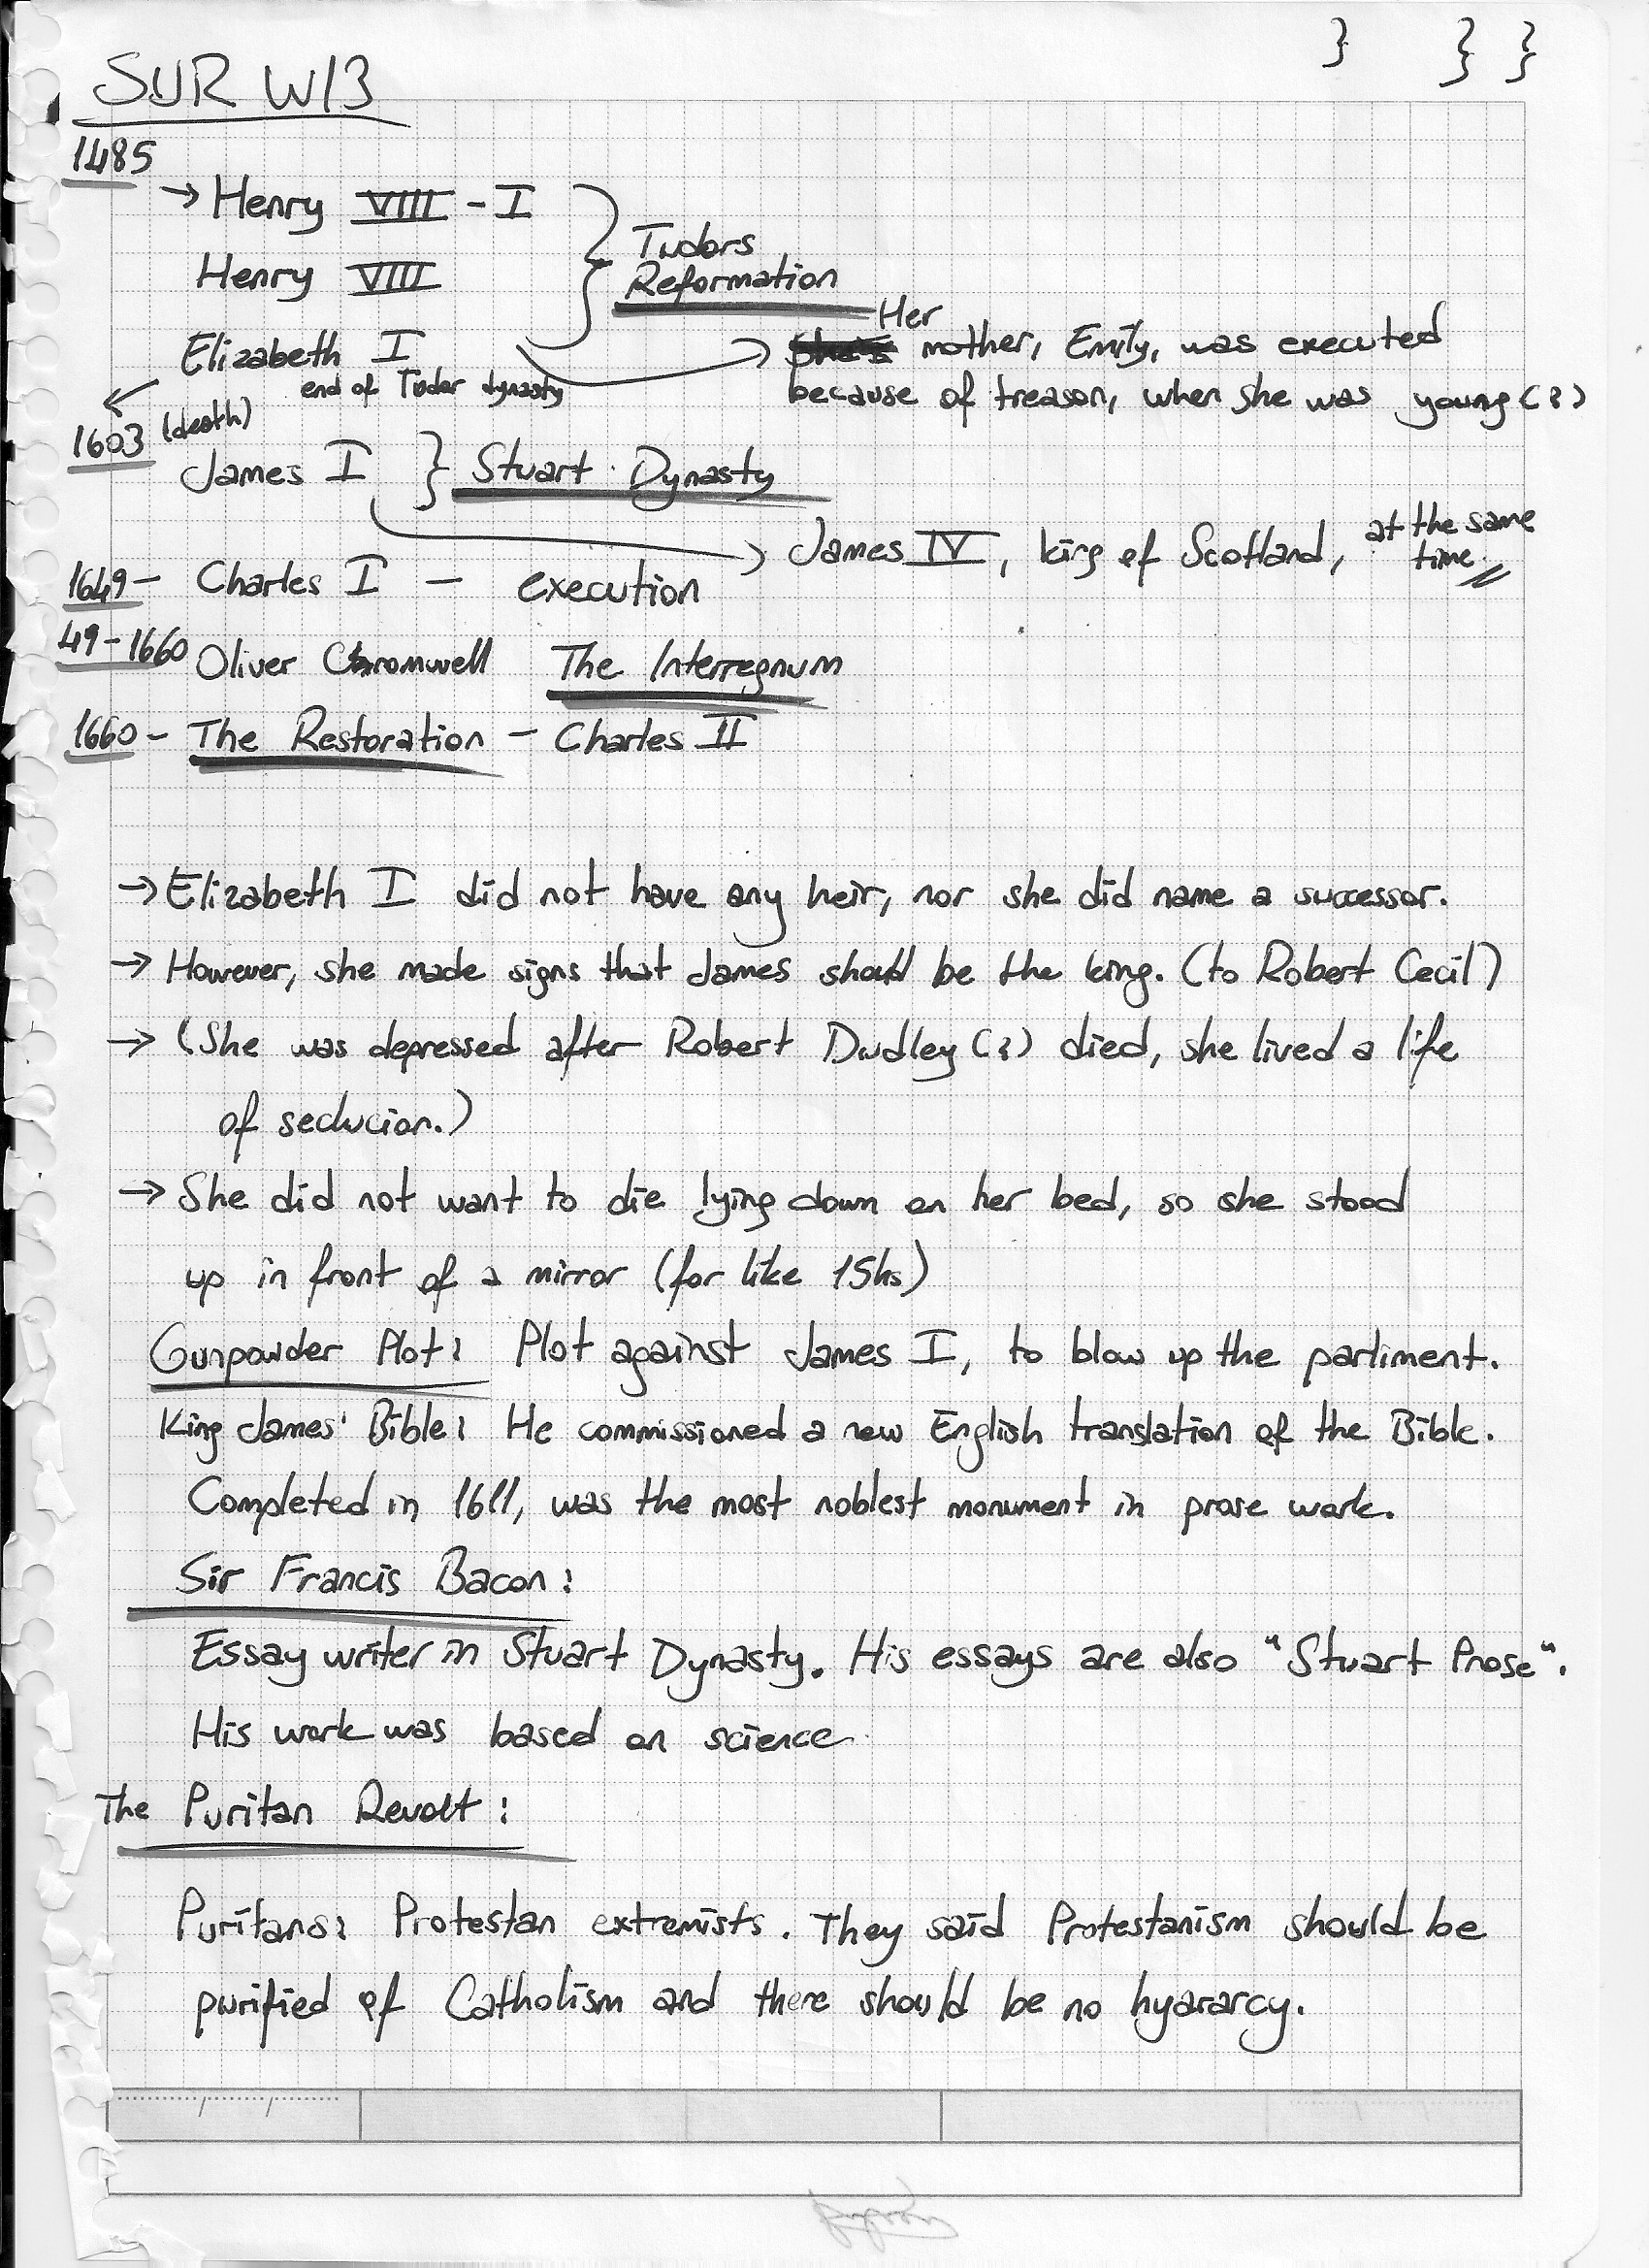 SUR W/3
1485
→ Henry VIII - I
Henry VIII
Tudors
Reformation
Elizabeth I
end of Tudor dynasty
Her mother, Emily, was executed
because of treason, when she was young (?)
1603 (death)
James I } Stuart Dynasty
→ James IV, king of Scotland, at the same
time.
1649 - Charles I - execution
49-1660 Oliver Cromwell The Interregnum
1660 - The Restoration - Charles II
→ Elizabeth I did not have any heir, nor she did name a successor.
→ However, she made signs that James should be the king. (to Robert Cecil)
→ (She was depressed after Robert Dudley (?) died, she lived a life
of seclucion.)
→ She did not want to die lying down on her bed, so she stood
up in front of a mirror (for like 15hs)
Gunpowder Plot: Plot against James I, to blow up the parliment.
King James' Bible: He commissioned a new English translation of the Bible.
Completed in 1611, was the most noblest monument in prose work.
Sir Francis Bacon:
Essay writer in Stuart Dynasty. His essays are also "Stuart Prose".
His work was based on science
The Puritan Revolt:
Puritans: Protestan extremists. They said Protestanism should be
purified of Catholism and there should be no hyararcy.